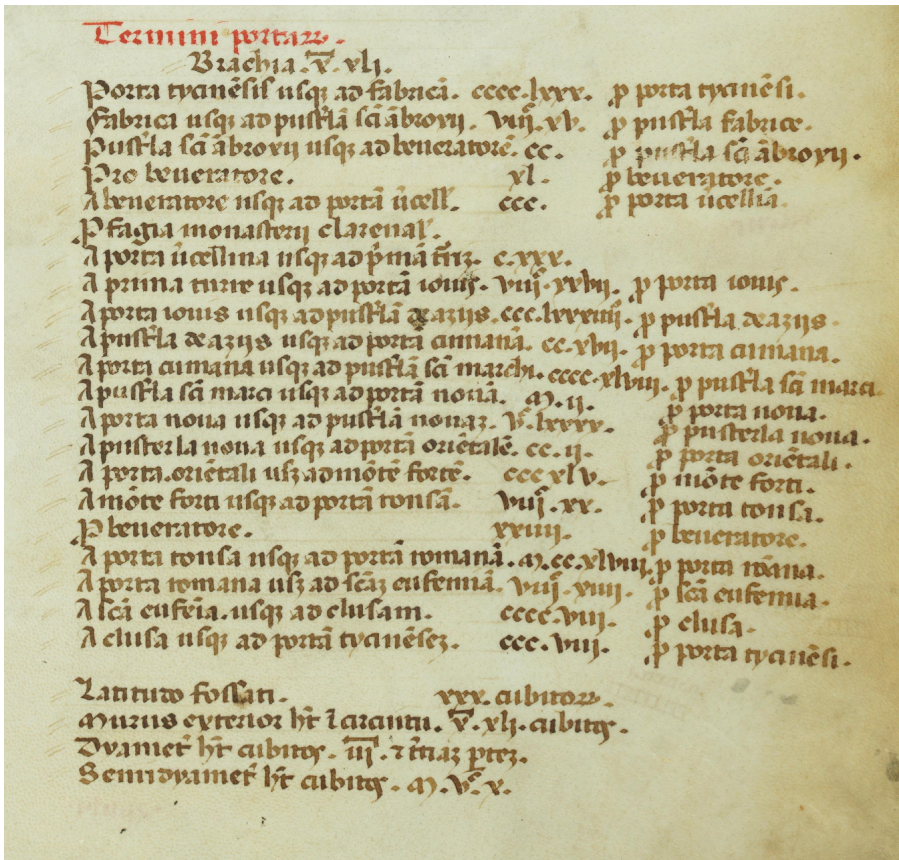 Termini portarꝝ.
Brachia. v̅. xli.
Porta tycinēsis usqꝫ ad fabricā. cccc. lxxx. ꝓ porta tycinēsi.
Fabrica usqꝫ ad pust̄lā sc̄i ābroxij. viiij. xv. ꝓ pust̄la fabrice.
Pust̄la sc̄i ābroxij usqꝫ ad beueratorē. cc. ꝓ pust̄la sc̄i ābroxij.
Pro beueratore. xl. ꝓ beueratore.
A beueratore usqꝫ ad portā u̅cell̄. ccc. ꝓ porta u̅cellīa.
P fagia monasterij clarenal̄.
A porta u̅cellina usqꝫ ad p̄mā tur̄rꝫ. c. xxx.
A prima turre usqꝫ ad portā iouis. viiij. xxvij. ꝓ porta iouis.
A porta iouis usqꝫ ad pust̄lā de azijs. ccc. lxxxiiij. ꝓ pust̄la de azijs.
A pust̄la de azijs usqꝫ ad portā cumanā. cc. xvij. ꝓ porta cumana.
A porta cumana usqꝫ ad pust̄lā sc̄i marchi. cccc. xlviij. ꝓ pust̄la sc̄i marci.
A pust̄la sc̄i marci usqꝫ ad portā nouā. M. ii. ꝓ porta noua.
A porta noua usqꝫ ad pust̄lā nouaꝫ. vͨ. lxxxx. ꝓ pusterla noua.
A pusterla noua usqꝫ ad portā oriētalē. cc. ii. ꝓ porta oriētali.
A porta. oriētali usꝫ ad mōtē fortē. ccc xlv. ꝓ mōte forti.
A mōte forti usqꝫ ad portā tonsā. viiij. xx. ꝓ porta tonsa.
P beueratore. xxiiij. ꝓ beueratore.
A porta tonsa usqꝫ ad portā romanā. M. cc. xlviij. ꝓ porta rōana.
A porta romana usꝫ ad sc̄aꝫ eufemiā. viiij. xiiij. ꝓ sc̄a eufemia.
A sc̄a eufēia. usqꝫ ad clusam. cccc. viii. ꝓ clusa.
A clusa usqꝫ ad portā tycinēseꝫ. ccc. viij. ꝓ porta tycinēsi.
Latitudo fossati. xxx. cubitorꝝ.
Murus exterior hꝫt ī circuitu. v̅. xli. cubitos.
Dyamet̄ hꝫt cubitos. iii̅. ⁊ t̄tiaꝫ p̄teꝫ.
Semidyamet̄ hꝫt cubitos. M. vͨ. x.